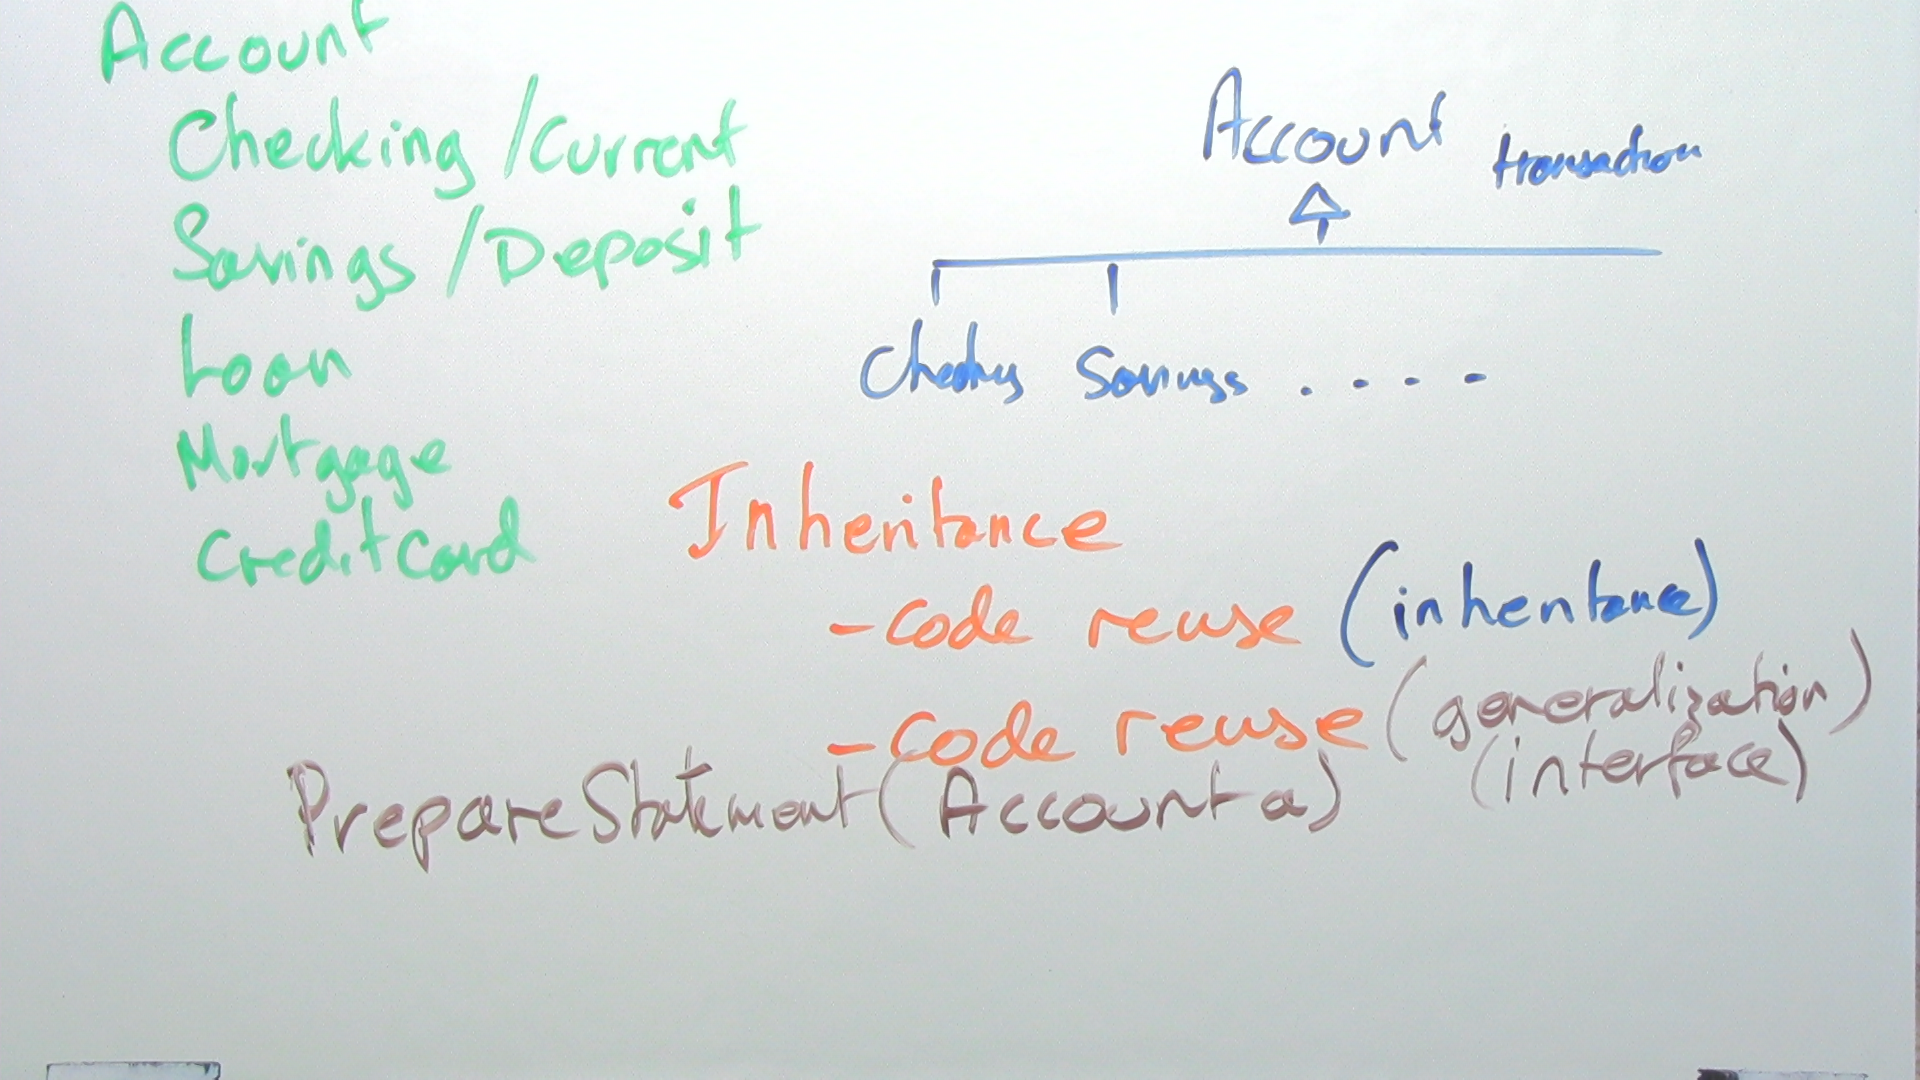 Account
Checking / Current
Savings / Deposit
Loan
Mortgage
Credit Card
Account transaction
Checking Savings . . . .
Inheritance
- code reuse (inheritance)
- code reuse (generalization)
(interface)
PrepareStatement(Account a)